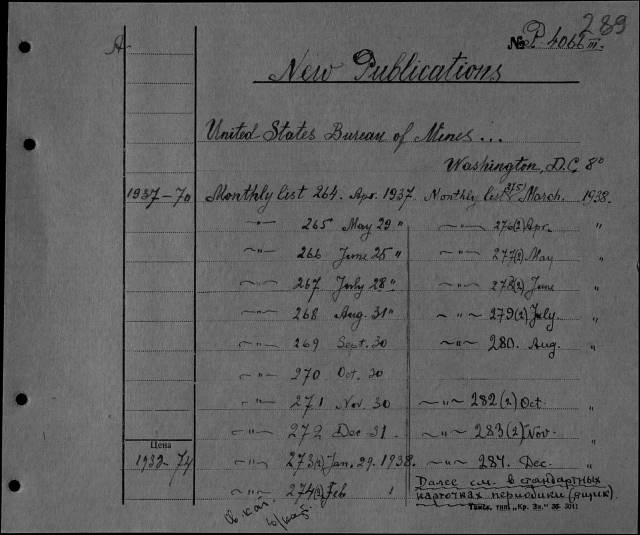 289
A
№ P. 4066 III.
New Publications
United States Bureau of Mines...
Washington, D.C. 8°
1937-70 Monthly list 264. Apr. 1937. Monthly list 275 March. 1938.
~"~ 265 May 29 " ~"~ 276(2) Apr. "
~"~ 266 June 25 " ~"~ 277(2) May "
~"~ 267 July 28 " ~"~ 278(2) June "
~"~ 268 Aug. 31 " ~"~ 279(2) July. "
~"~ 269 Sept. 30 ~"~ 280. Aug. "
~"~ 270 Oct. 30
~"~ 271 Nov. 30 ~"~ 282(2) Oct. "
~"~ 272 Dec 31. ~"~ 283(2) Nov. "
Цена
~"~ 273(2) Jan. 29. 1938. ~"~ 284. Dec. "
~"~ 274(2) Feb
Далее см. в стандартных
карточках периодики (ящик).
Тамб. тип. „Кр. Зн."